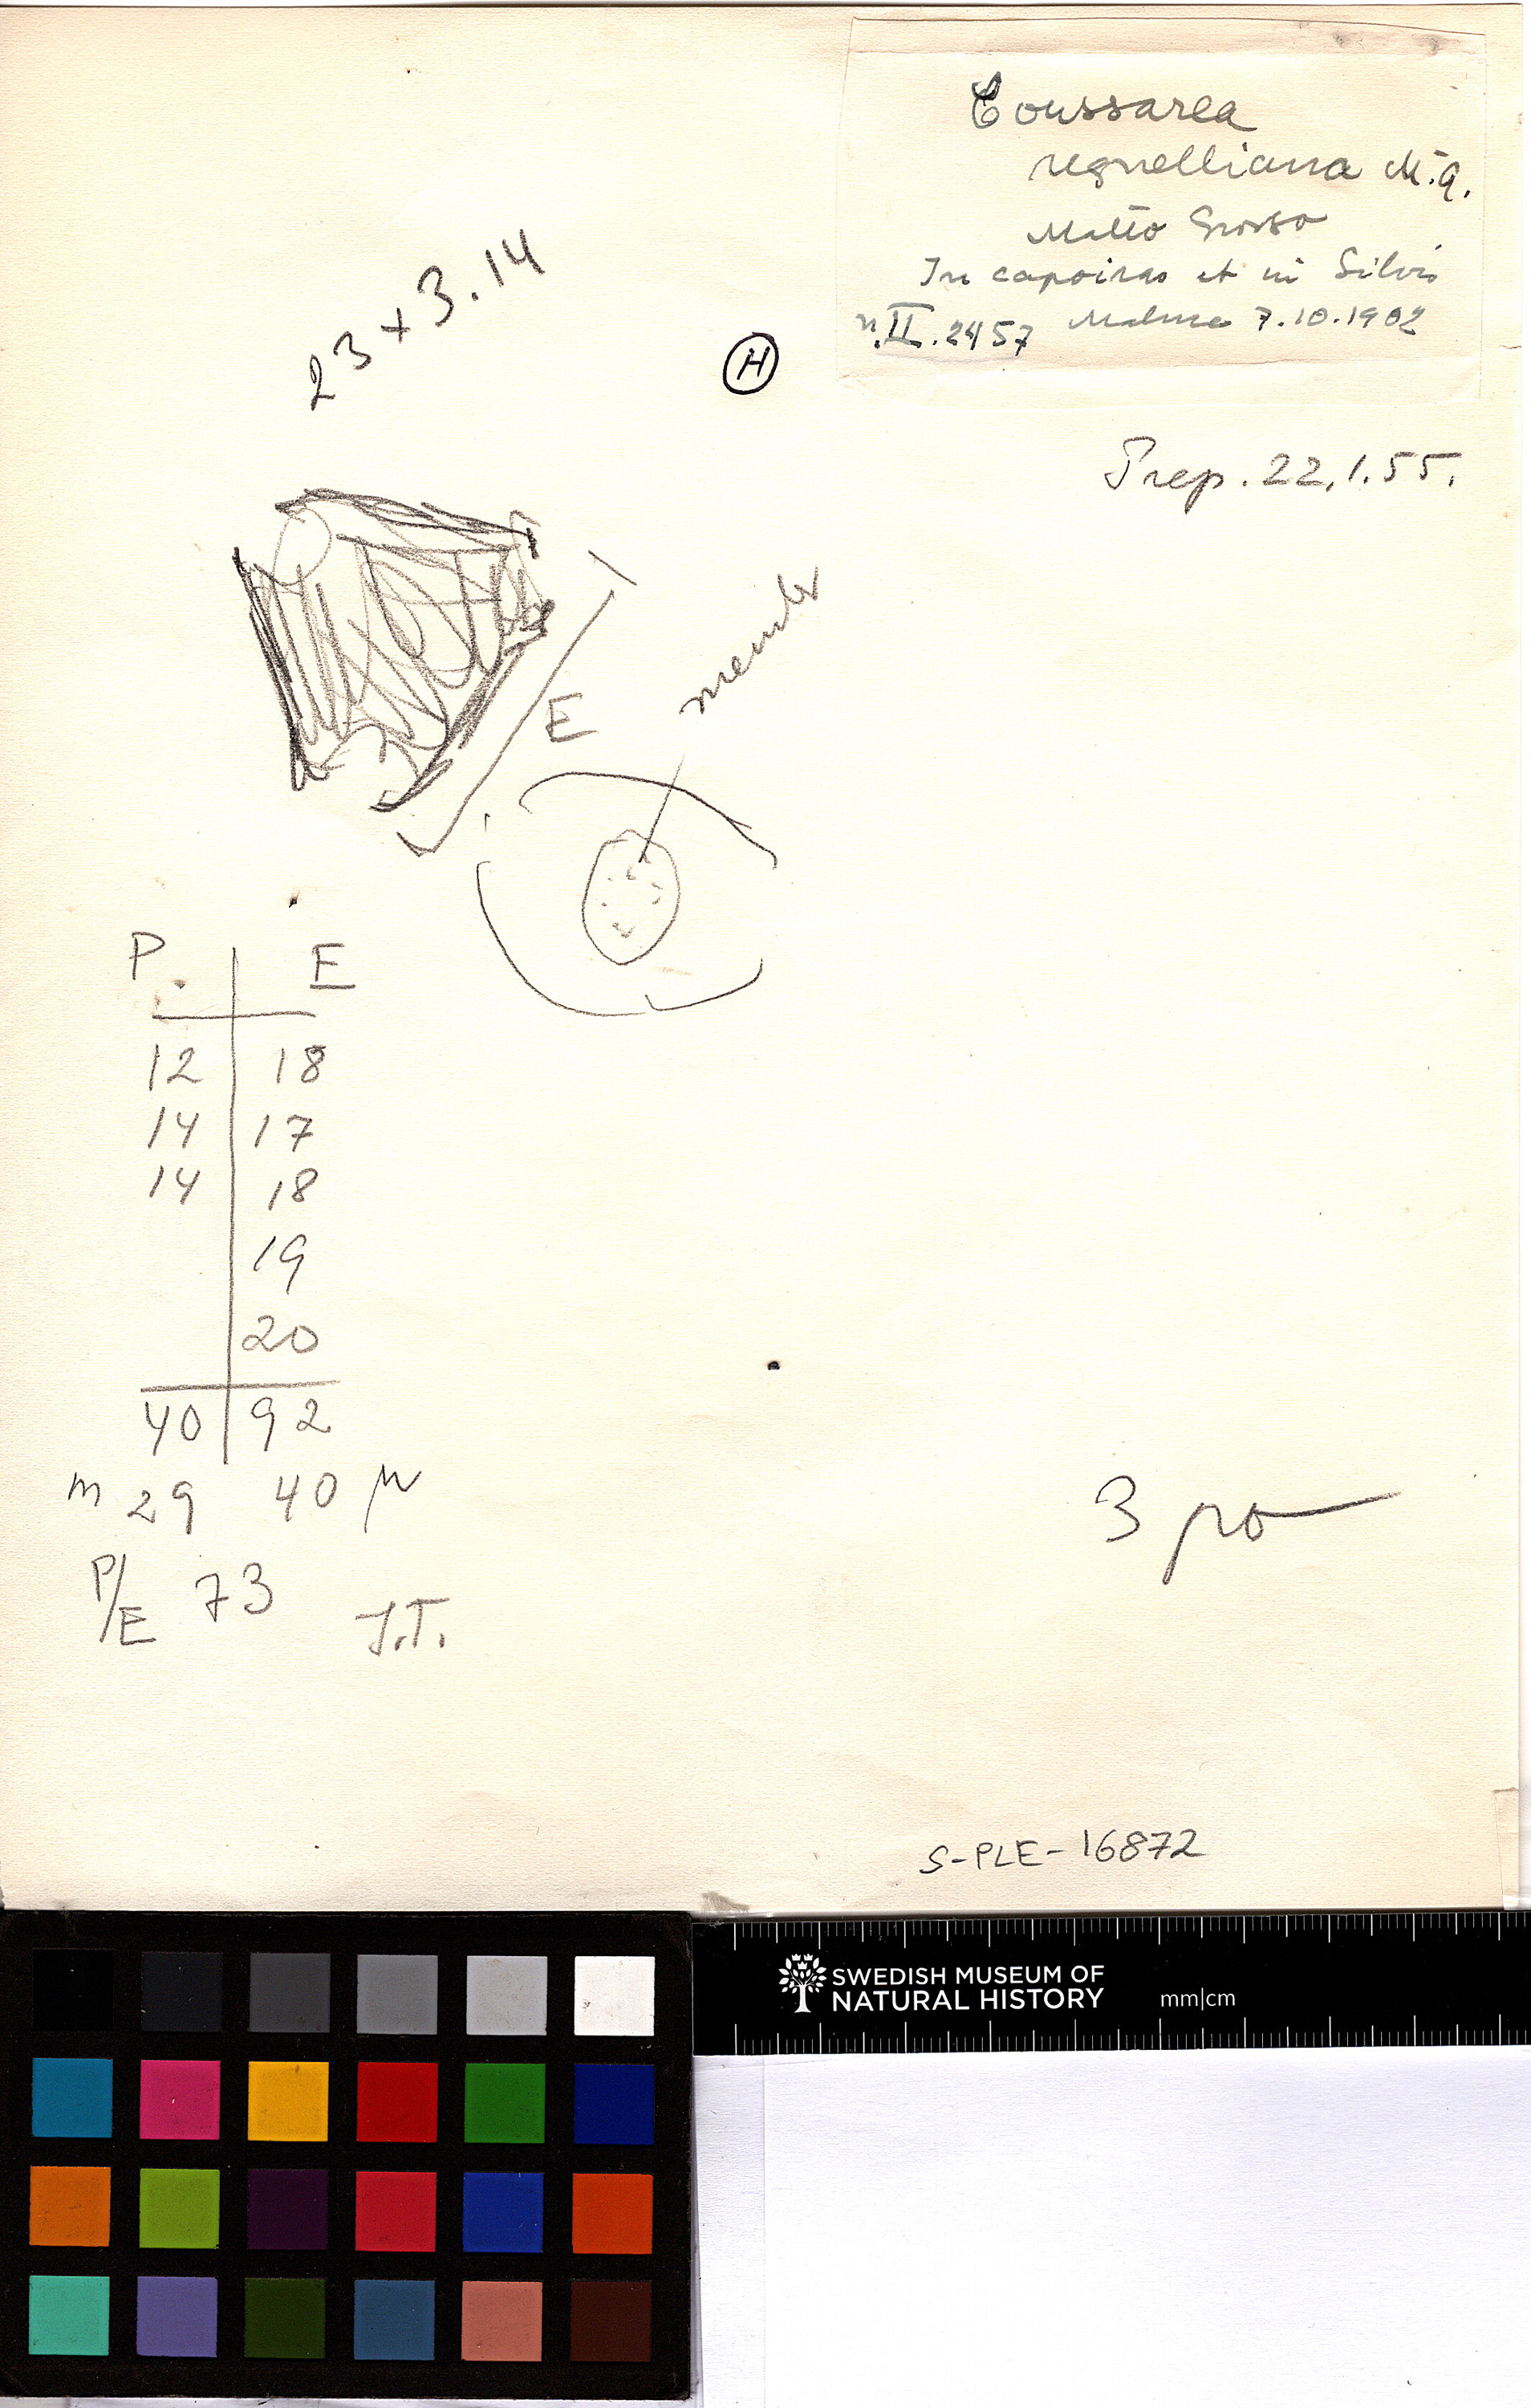 Coussarea
regnelliana M.A.
Matto Grosso
In capoiras et in Silvis
n. II. 2457 Malme 7.10.1902
23 x 3.14
H
Prep. 22.1.55.
E
membr
P. E
12 18
14 17
14 18
19
20
40 92
m 29 40 µ
P/E 73
J.T.
3 po
S-PLE-16872
SWEDISH MUSEUM OF
NATURAL HISTORY
mm|cm